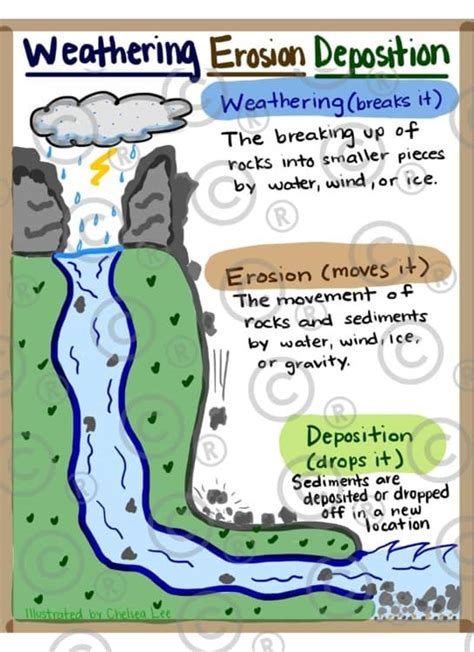 Weathering Erosion Deposition
Weathering (breaks it)
The breaking up of
rocks into smaller pieces
by water, wind, or ice.
Erosion (moves it)
The movement of
rocks and sediments
by water, wind, ice,
or gravity.
Deposition
(drops it)
Sediments are
deposited or dropped
off in a new
location
Illustrated by Chelsea Lee